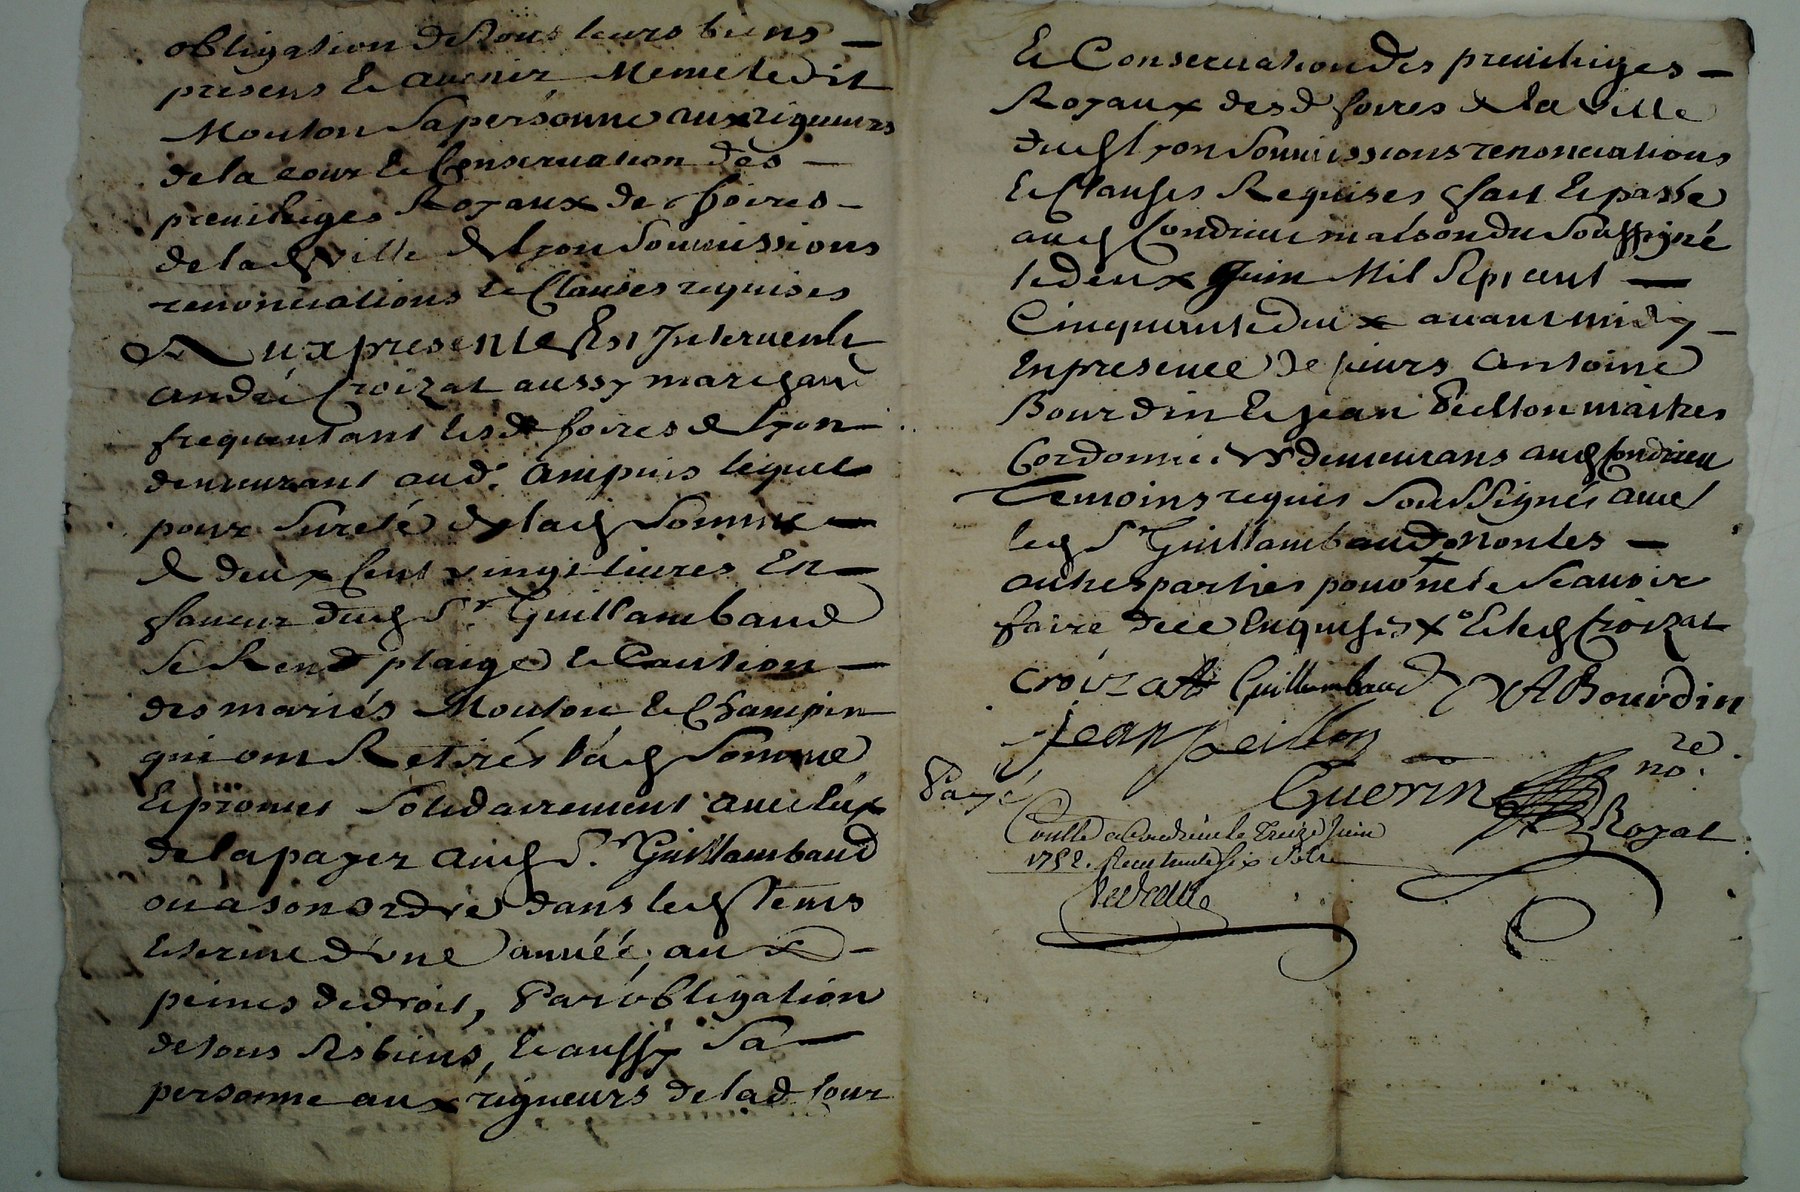 obligation de tous leurs biens —
presens & avenir Meme ledit
Mouton sa personne aux rigueurs
de la cour & Conservation des —
previleiges Royaux de foires —
de lad ville de Lyon Soumissions
renonciations & Clauses requises
Aux presente Est Intervenu
andré Croizat aussy marchand
frequentant lesd foires de Lyon
demeurant aud. Ampuis lequel
pour sureté de lad Somme —
de deux Cent vingt livres En —
faveur dud Sr. Guillambaud
se Rend plaige & Caution —
des mariés Mouton & Champin
qui ont Retirés lad Somme
Et promet solidairement avec Eux
de la payer aud Sr. Guillambaud
ou a son ordre dans led tems
& terme d'une année, aux —
peines de droit, Par obligation
de tous ses biens, & aussy Sa —
personne aux rigueurs de lad Cour
& Conservation des previleiges —
Royaux desd foires de la ville
dud Lyon Soumissions renonciations
& Clauses Requises fait & passé
aud Condrieu maison du Soussigné
le deux Juin Mil Sept cent —
Cinquante deux avant midy —
En presence de sieurs Antoine
Bourdin & Jean Peillon maitres
Cordonniers demeurans aud Condrieu
Temoins requis soussignés avec
led Sr Guillambaud non les —
autres parties pour ne le scavoir
faire de ce Enquises x Et led Croizat
croizat Guillambaud A Bourdin
Jean peillon
Payé Guerin nore.
Royal
Conllé a Condrieu le Treize Juin
1752. Recu trente six sols